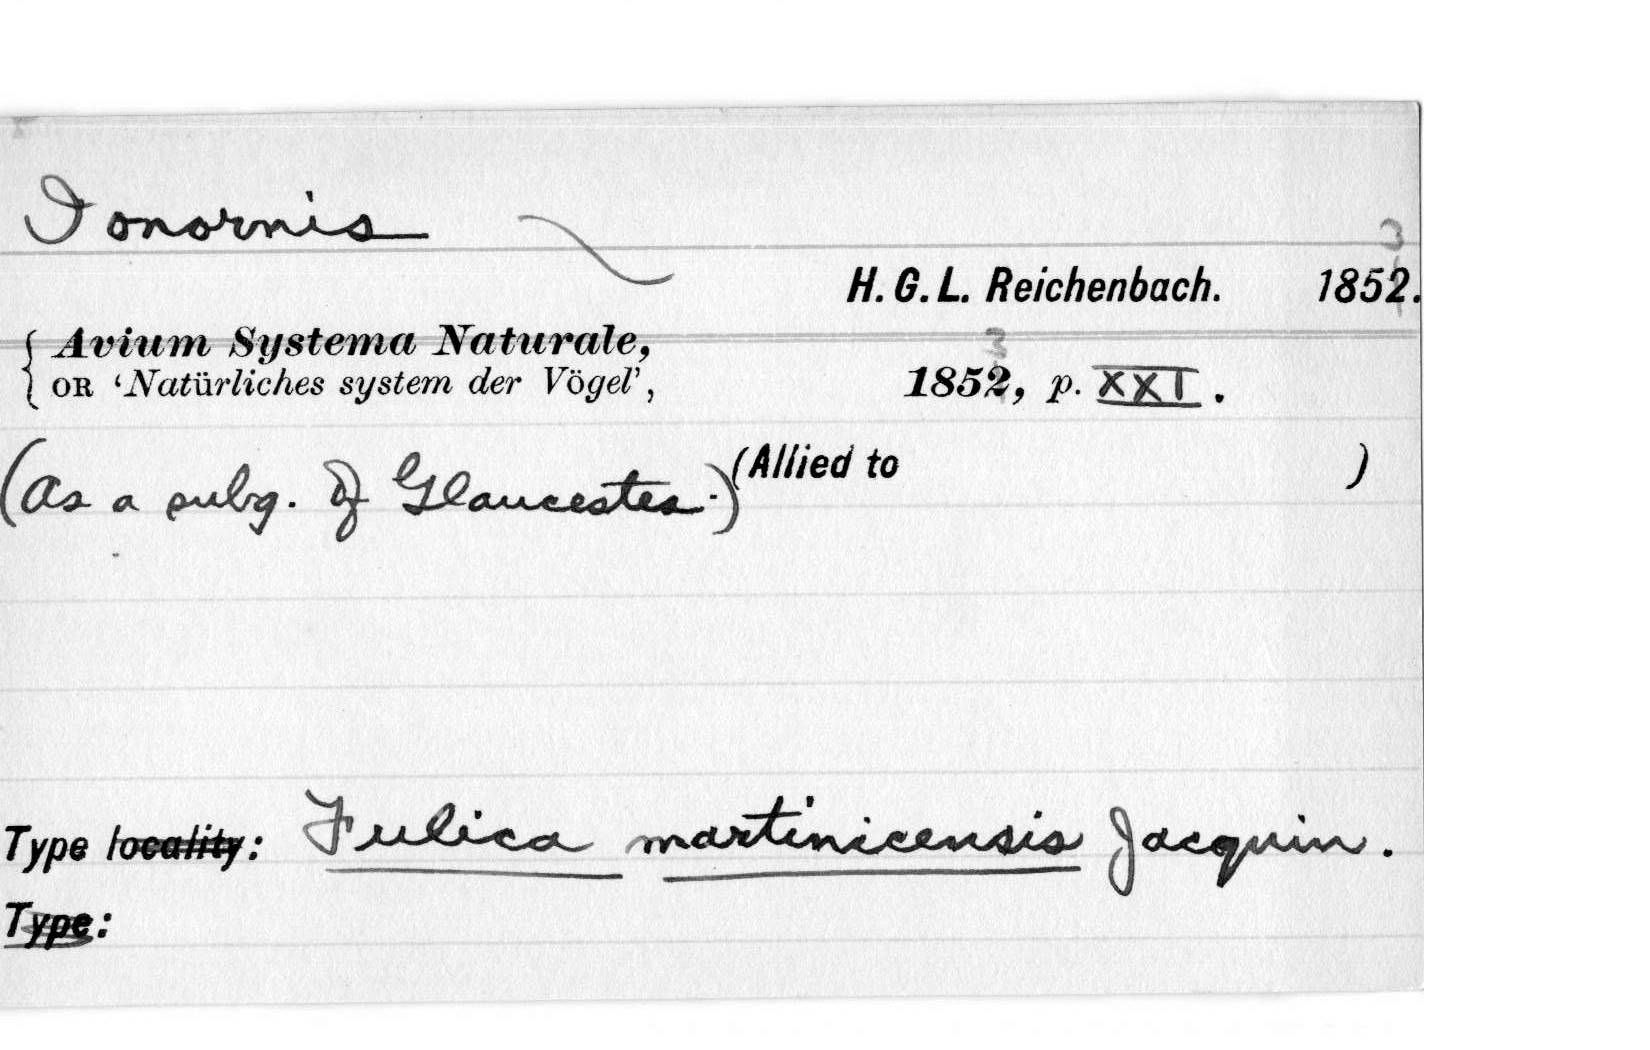 Ionornis
3
H. G. L. Reichenbach. 1852.
Avium Systema Naturale,
3
OR ‘Natürliches system der Vögel’, 1852, p. XXI.
(As a subg. of Glaucestes.) (Allied to )
Type locality: Fulica martinicensis Jacquin.
Type: